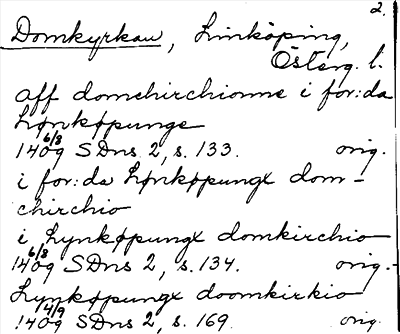 2.
Domkyrkan, Linköping,
Österg. l.
aff domchirchionne i for:da
Lønkøpunge
6/8
1409 SDns 2, s. 133. orig.
i for:da Lønkøpungx dom-
chirchio
i Lynkøpungx domkirchio
6/8
1409 SDns 2, s. 134. orig.
Lynkøpungx doomkirkio
14/9
1409 SDns 2, s. 169 orig.